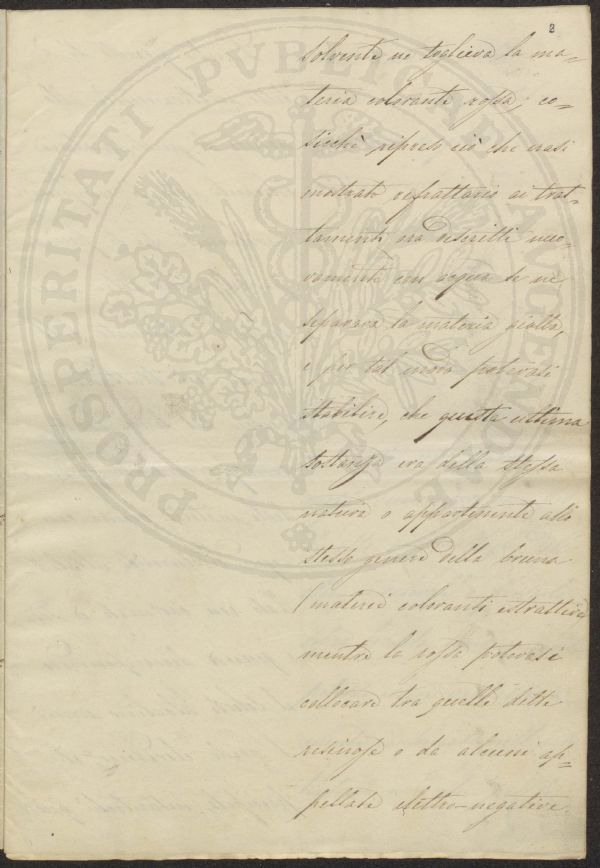 2
solvente ne toglieva la ma=
teria colorante rossa; co=
sicchè ripreso ciò che erasi
mostrato refrattario ai trat=
tamenti ora descritti nuo=
vamente con acqua se ne
separava la materia gialla,
e per tal modo potevasi
stabilire, che questa ultima
sostanza era della stessa
natura o appartenente allo
stesso genere della bruna
(materie coloranti estrattive)
mentre la rossa potevasi
collocare tra quelle dette
resinose o da alcuni ap=
pellate elettro-negative.
PROSPERITATI PVBLICAE AVGENDAE